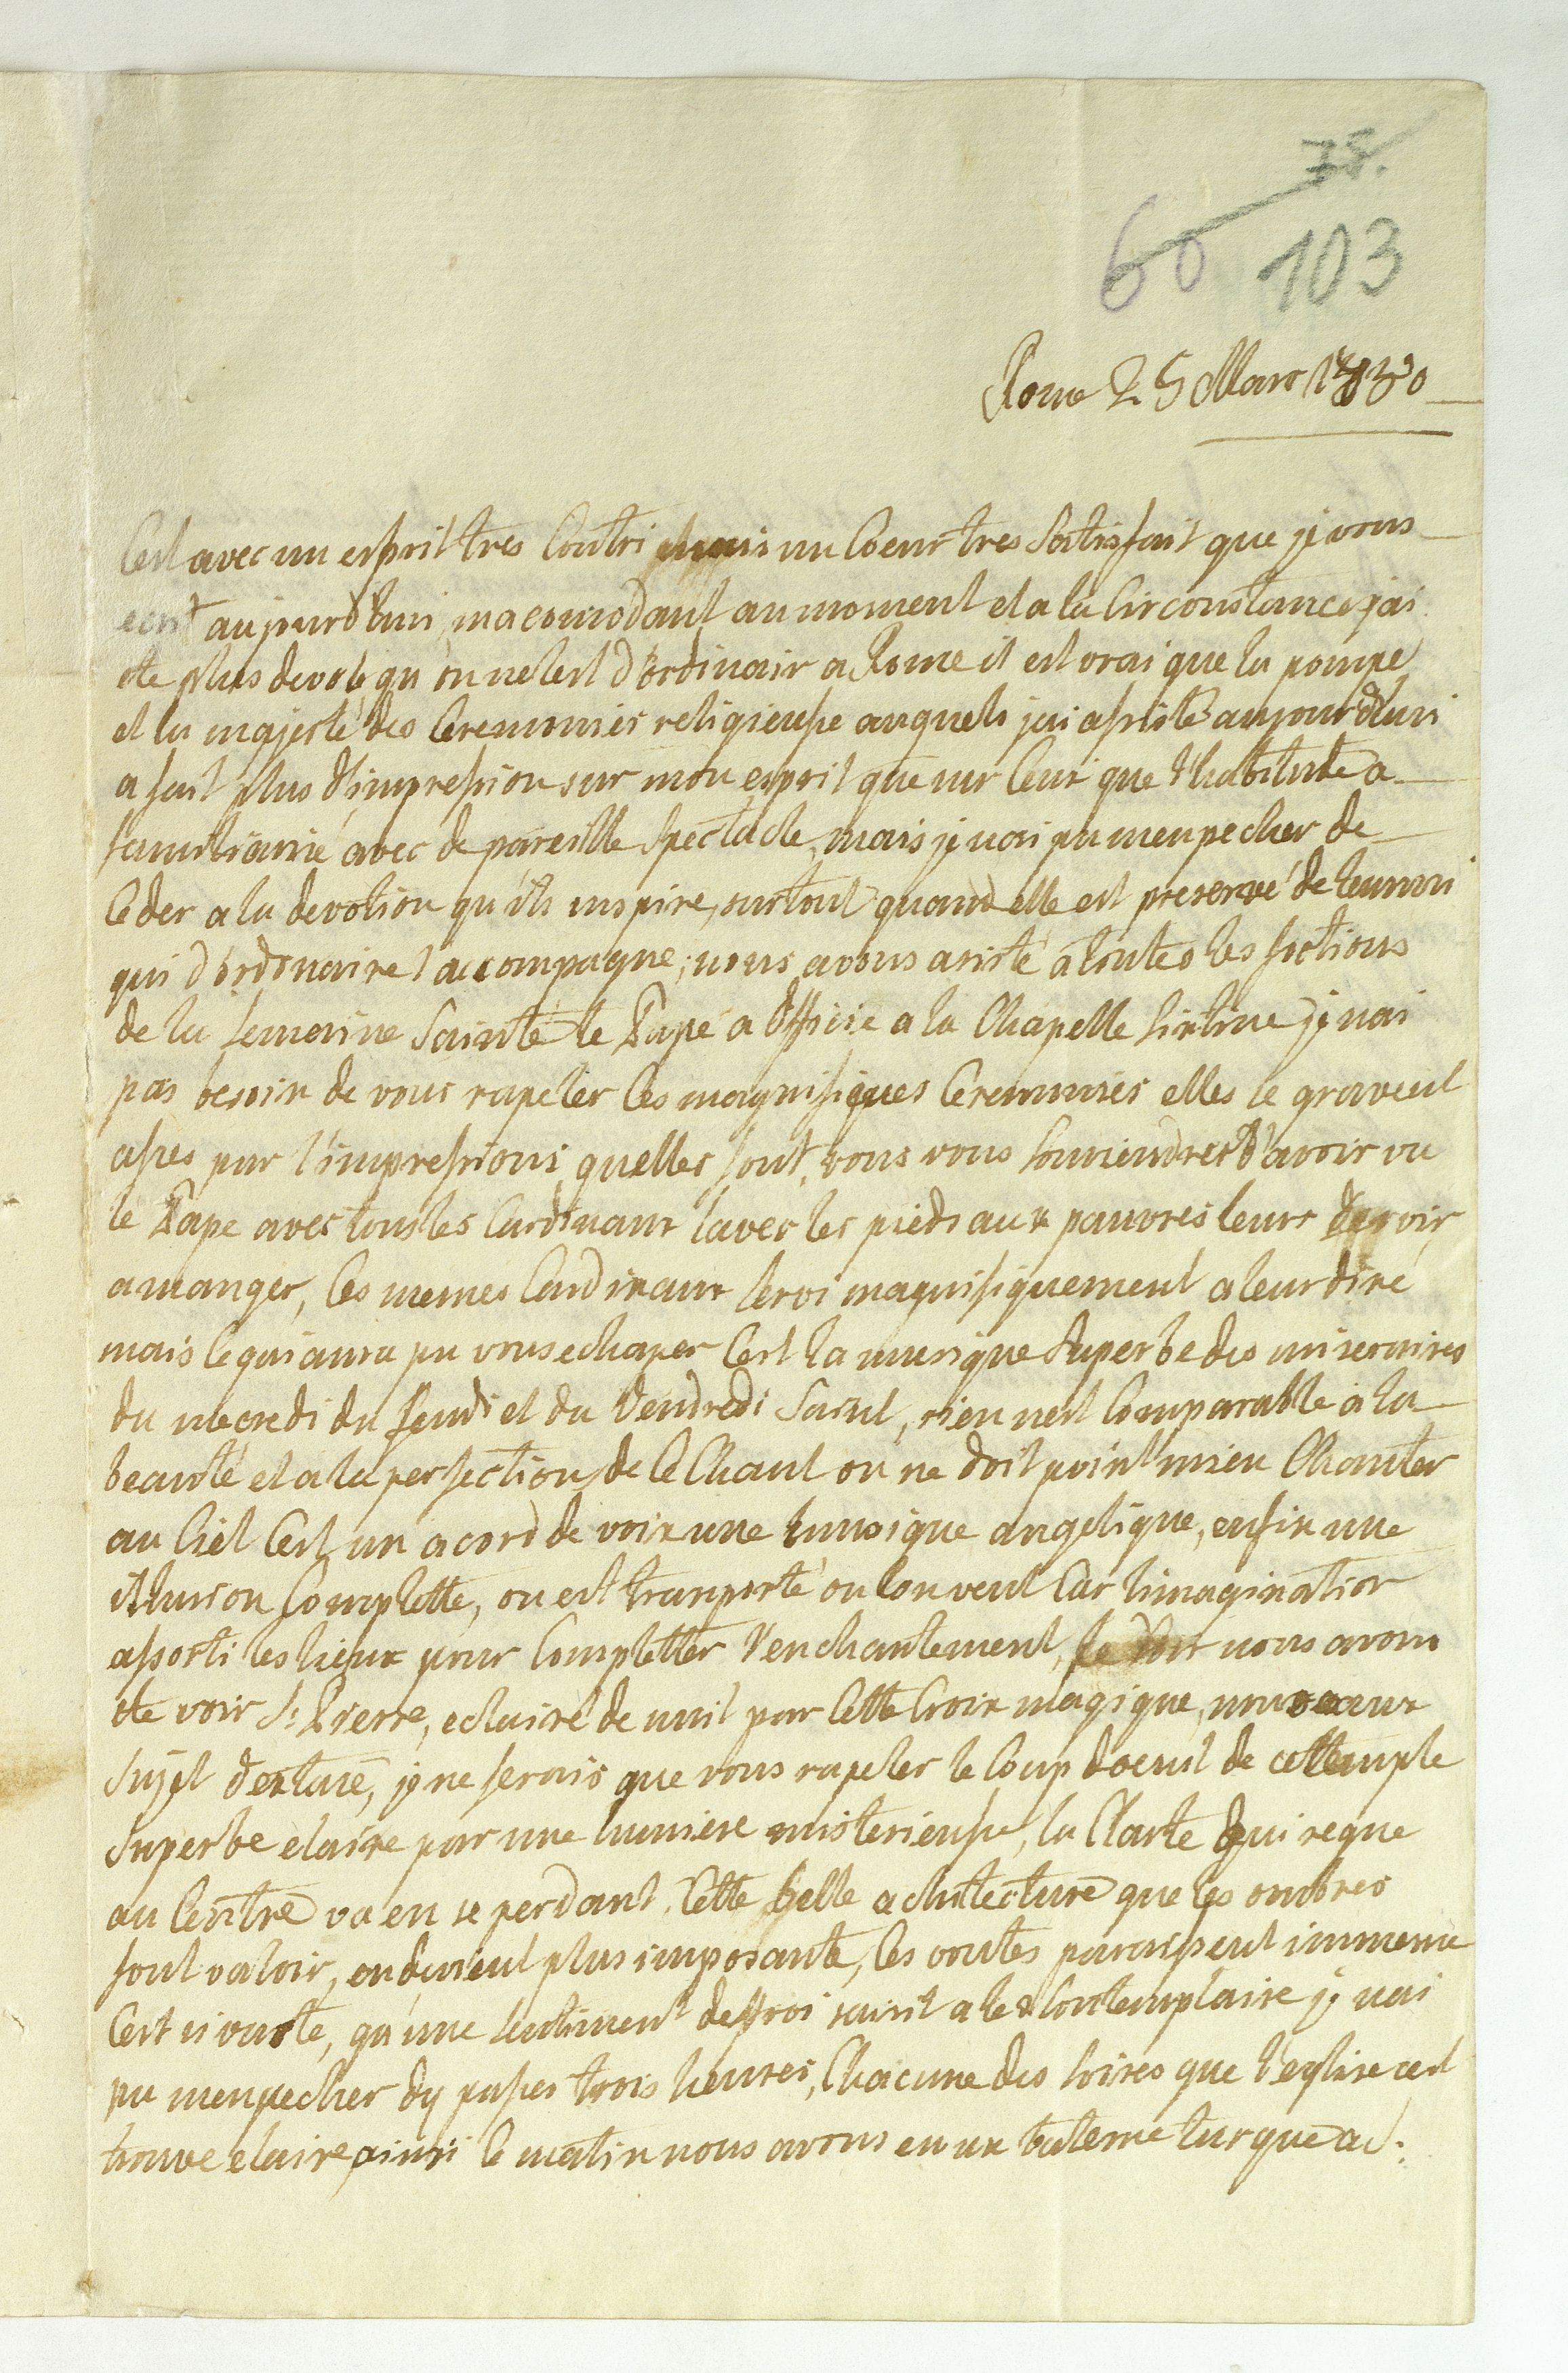 75.
60 103
Rome 25 Mars 1780
Cest avec un esprit tres Contri mais un Coeur tres Satisfait que je vous
ecrit aujourdhui, macomodant au moment et a la Circonstance jai
ete plus devote qu on ne lest d'ordinair a Rome il est vrai que la pompe
et la majesté des Ceremonies religieuse auquels jai assisté aujourdhui
a fait plus d'impression sur mon esprit que sur Ceux que l'habitude a
familiarisé avec de pareille Spectacle, mais je nai pu menpecher de
Ceder a la devotion qu'ils inspire, surtout quand elle est preservé de lennui
qui d'ordinaire l accompagne; nous avons assisté a toutes les foctions
de la Semaine Sainte le Pape a officié a la Chapelle Sixtine je nai
pas besoin de vous rapeller Ces magnifiques Ceremonies elles se gravent
asses par l'impressions quelles font, vous vous Souviendres d'avoir vu
le Pape avec tous les Cardinaux laver les pieds aux pauvres leurs servir
a manger, Ces memes Cardinaux servi magnifiquement a leur diné
mais Ce qui aura pu vous echaper Cest la musique Superbe des miseraires
du mecredi du Jeudi et du Vendredi Saint, rien nest Comparable a la
beauté et a la perfection de Ce Chant on ne doit point mieu Chanter
au Ciel Cest un acord de voix une musique angelique, enfin une
illusion Complette, on est transporté ou lon veut Car limagination
assorti les lieux pour Completter l'enchantement, le soir nous avons
ete voir St Pierre, eclairé de nuit par Cette Croix magique, nouveaux
Sujet d'extase, je ne ferais que vous rapeler le Coup doeuil de ce temple
Superbe elaire par une lumiere misterieuse, la Clarte qui regne
au Centre va en se perdant. Cette belle achitecture que les ombres
font valoir, en devient plus imposante, les voutes paraissent immense
Cest si vaste, qu'une sentiment deffroi saisit a le Contemplaire je nai
pu menpecher dy passer trois heures, Chacune des soires que l'eglise cest
trouve elaire ainsi le matin nous avons eu un bateme turque a S: